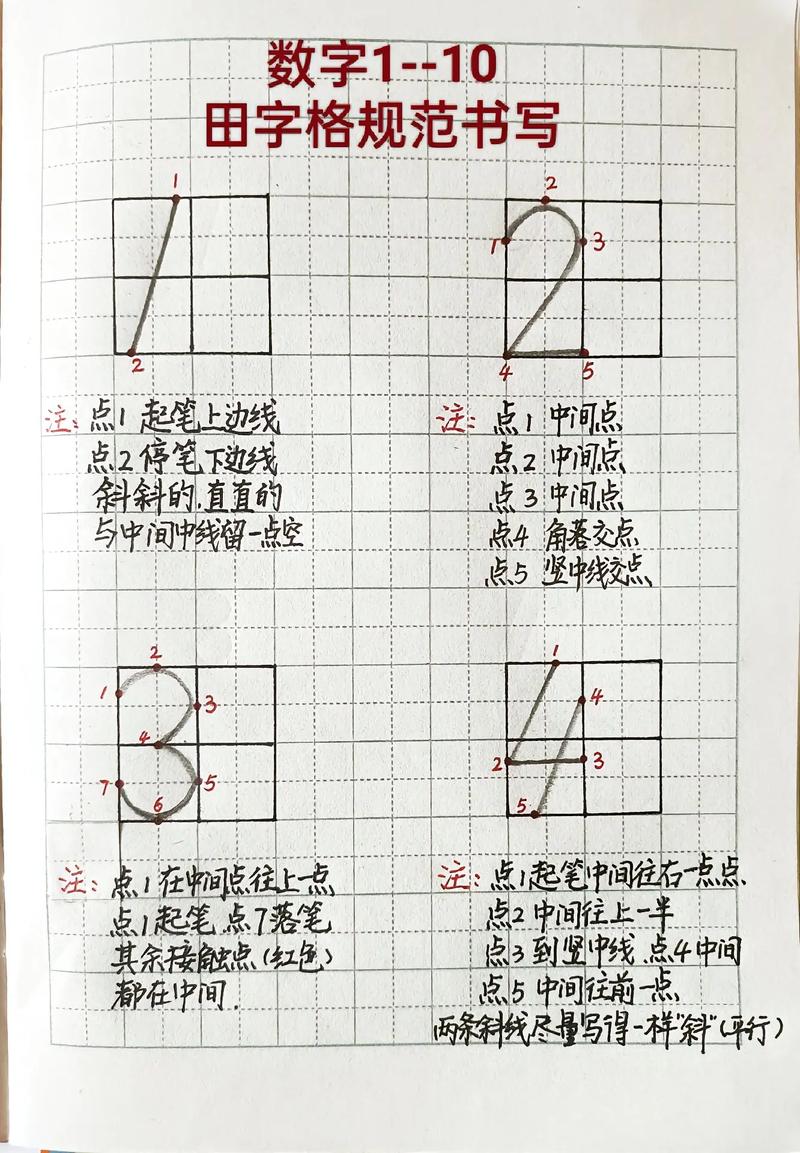 数字1--10
田字格规范书写
1
2
注: 点1 起笔上边线
点2 停笔下边线
斜斜的.直直的
与中间中线留一点空
1
2
3
4
5
注: 点1 中间点
点2 中间点
点3 中间点
点4 角落交点
点5 竖中线交点
1
2
3
4
5
6
7
注: 点1在中间点往上一点
点1起笔.点7落笔
其余接触点(红色)
都在中间.
1
2
3
4
5
注: 点1起笔中间往右一点点.
点2中间往上一半
点3到竖中线.点4中间
点5中间往前一点
两条斜线尽量写得一样"斜"(平行)